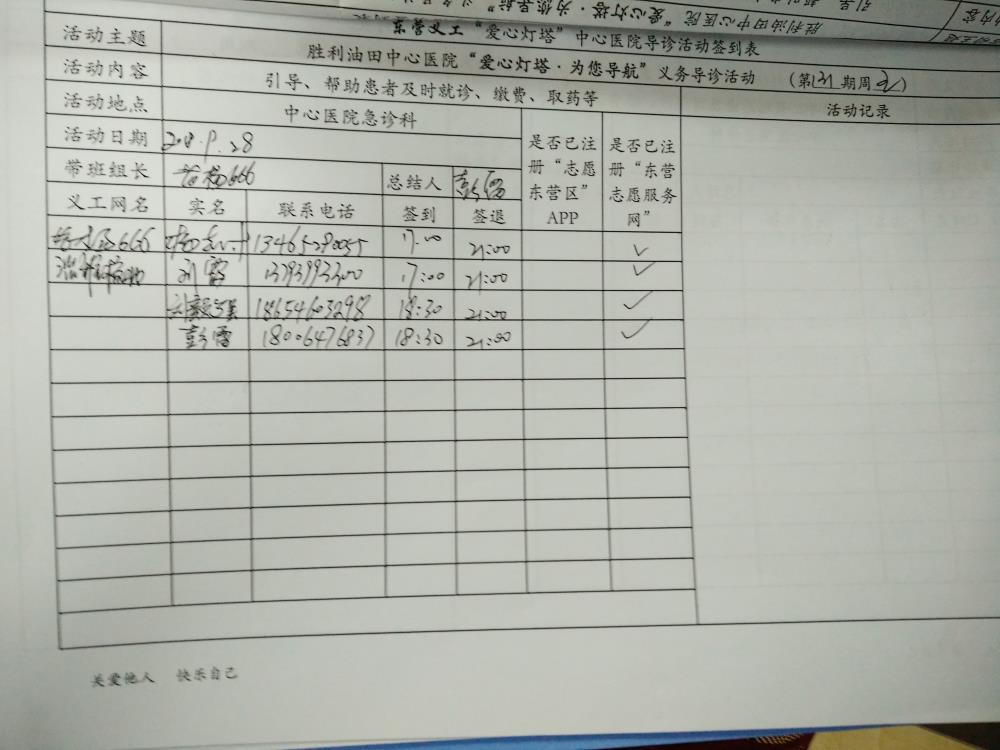 东营义工“爱心灯塔”中心医院导诊活动签到表
活动主题 胜利油田中心医院“爱心灯塔·为您导航”义务导诊活动 (第131期周五)
活动内容 引导、帮助患者及时就诊、缴费、取药等 活动记录
活动地点 中心医院急诊科
活动日期 2018.9.28
带班组长 666 总结人 彭霞
义工网名 实名 联系电话 签到 签退 是否已注册“志愿东营区”APP 是否已注册“东营志愿服务网”
666 13465290055 17:00 21:00 ✓
刘霞 13793993300 17:00 21:00 ✓
18654603298 18:30 21:00 ✓
彭霞 18006476837 18:30 21:00 ✓
关爱他人 快乐自己